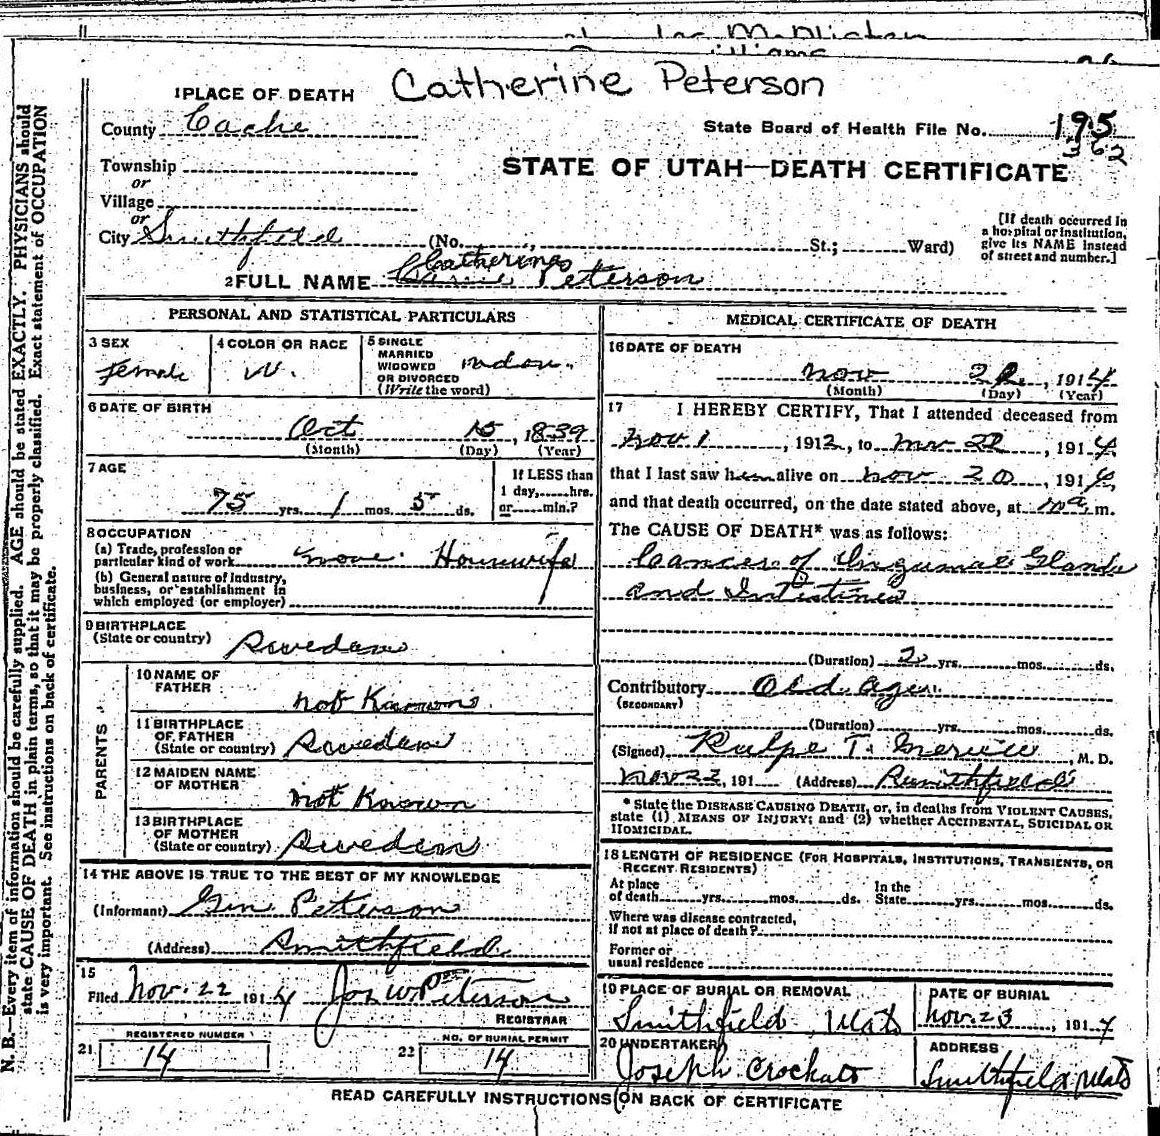 Catherine Peterson
1 PLACE OF DEATH
County Cache
State Board of Health File No. 195
362
Township
or
Village
or
City Smithfield (No. , St.; Ward)
STATE OF UTAH—DEATH CERTIFICATE
[If death occurred in a hospital or institution, give its NAME instead of street and number.]
Catherine
2 FULL NAME Peterson
PERSONAL AND STATISTICAL PARTICULARS
3 SEX
Female
4 COLOR OR RACE
W.
5 SINGLE
MARRIED
WIDOWED
OR DIVORCED
(Write the word)
6 DATE OF BIRTH
Oct 15, 1839
(Month) (Day) (Year)
7 AGE
75 yrs. 1 mos. 5 ds.
If LESS than
1 day, hrs.
or min.?
8 OCCUPATION
(a) Trade, profession or
particular kind of work Housewife
(b) General nature of industry,
business, or establishment in
which employed (or employer)
9 BIRTHPLACE
(State or country) Sweden
PARENTS
10 NAME OF
FATHER not Known
11 BIRTHPLACE
OF FATHER
(State or country) Sweden
12 MAIDEN NAME
OF MOTHER not Known
13 BIRTHPLACE
OF MOTHER
(State or country) Sweden
14 THE ABOVE IS TRUE TO THE BEST OF MY KNOWLEDGE
(Informant) Peterson
(Address) Smithfield
15
Filed Nov. 22 1914 Jos W Peterson
REGISTRAR
REGISTERED NUMBER
21 14
NO. OF BURIAL PERMIT
22 14
MEDICAL CERTIFICATE OF DEATH
16 DATE OF DEATH
Nov , 1914
(Month) (Day) (Year)
17 I HEREBY CERTIFY, That I attended deceased from
Nov 1, 1912, to Nov 22, 1914,
that I last saw h alive on Nov 20, 1914,
and that death occurred, on the date stated above, at m.
The CAUSE OF DEATH* was as follows:
Cancer of Inguinal Glands
and Intestines
(Duration) 2 yrs. mos. ds.
Contributory Old age.
(SECONDARY)
(Duration) yrs. mos. ds.
(Signed) T. , M. D.
Nov 22, 191 (Address) Smithfield
* State the DISEASE CAUSING DEATH, or, in deaths from VIOLENT CAUSES,
state (1) MEANS OF INJURY; and (2) whether ACCIDENTAL, SUICIDAL OR
HOMICIDAL.
18 LENGTH OF RESIDENCE (FOR HOSPITALS, INSTITUTIONS, TRANSIENTS, OR
RECENT RESIDENTS)
At place
of death yrs. mos. ds. In the
State yrs. mos. ds.
Where was disease contracted,
if not at place of death?
Former or
usual residence
19 PLACE OF BURIAL OR REMOVAL
Smithfield, Utah
DATE OF BURIAL
Nov. 23, 1914
20 UNDERTAKER
Joseph
ADDRESS
Smithfield Utah
READ CAREFULLY INSTRUCTIONS ON BACK OF CERTIFICATE
N. B.—Every item of information should be carefully supplied. AGE should be stated EXACTLY. PHYSICIANS should
state CAUSE OF DEATH in plain terms, so that it may be properly classified. Exact statement of OCCUPATION
is very important. See instructions on back of certificate.